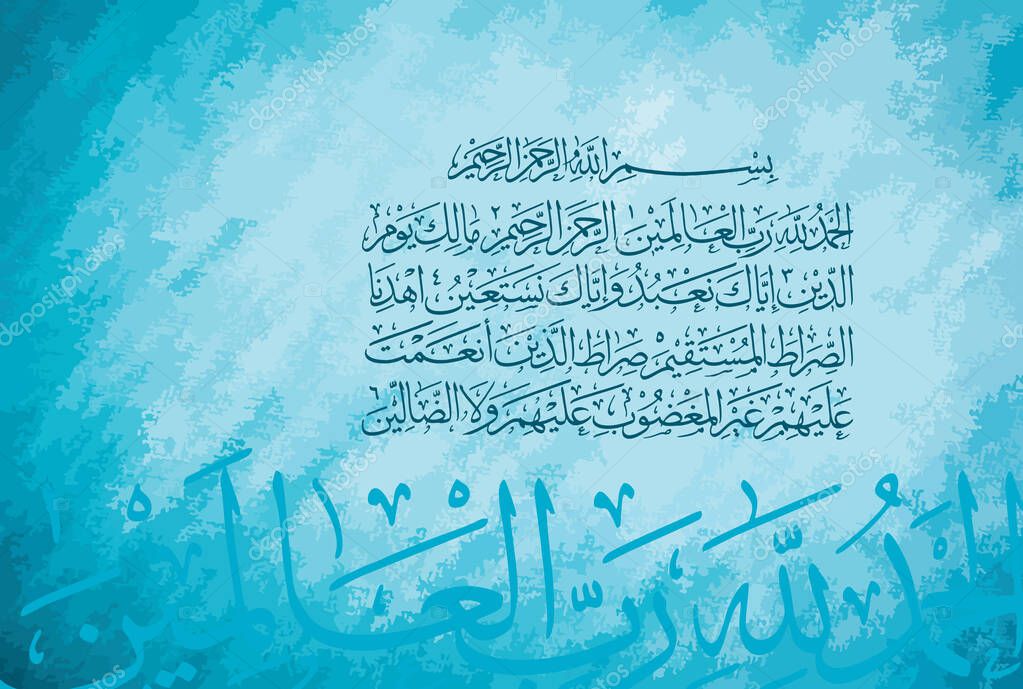 بِسْمِ اللَّهِ الرَّحْمَنِ الرَّحِيْمِ
الْحَمْدُ لِلَّهِ رَبِّ الْعَالَمِيْنَ ١ الرَّحْمَنِ الرَّحِيْمِ ٢ مَالِكِ يَوْمِ
الدِّيْنِ ٣ إِيَّاكَ نَعْبُدُ وَإِيَّاكَ نَسْتَعِيْنُ ٤ اهْدِنَا
الصِّرَاطَ الْمُسْتَقِيْمَ صِرَاطَ الَّذِيْنَ أَنْعَمْتَ
عَلَيْهِمْ غَيْرِ الْمَغْضُوْبِ عَلَيْهِمْ وَلَا الضَّالِّيْنَ ٦
الْحَمْدُ لِلَّهِ رَبِّ الْعَالَمِيْنَ ١
depositphotos